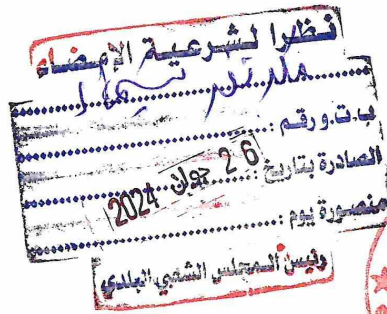 نظرا لشرعية الإمضاء
ب.ت.و رقم :
الصادرة بتاريخ :
26 جوان 2024
منصورة يوم :
رئيس المجلس الشعبي البلدي